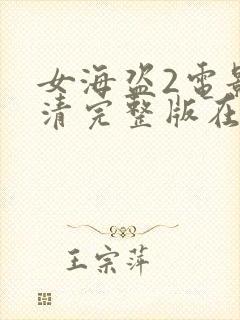 女海盗2电影
清完整版在
王宗萍